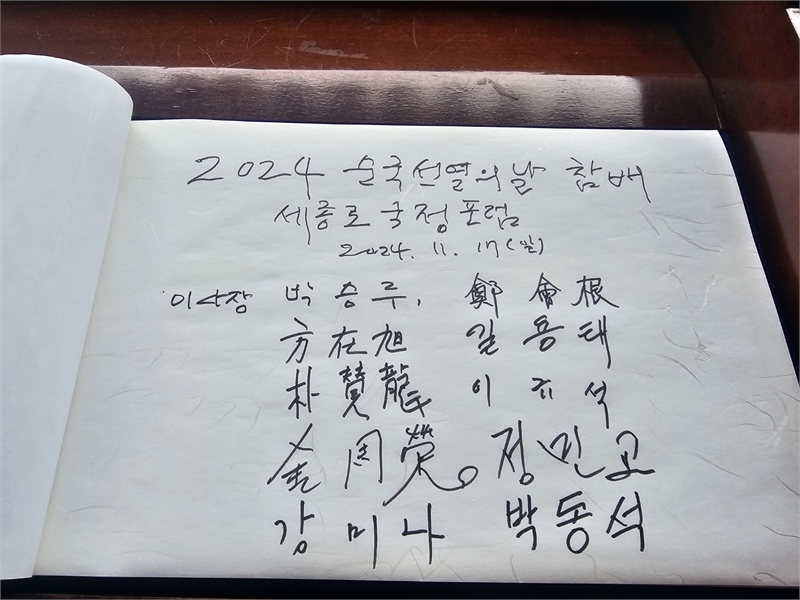 2024 순국선열의날 참배
세종로국정포럼
2024. 11. 17(일)
이사장 박승주, 鄭會根
方在旭 길용태
朴贊龍 이규석
金周榮 정민고
강미나 박동석